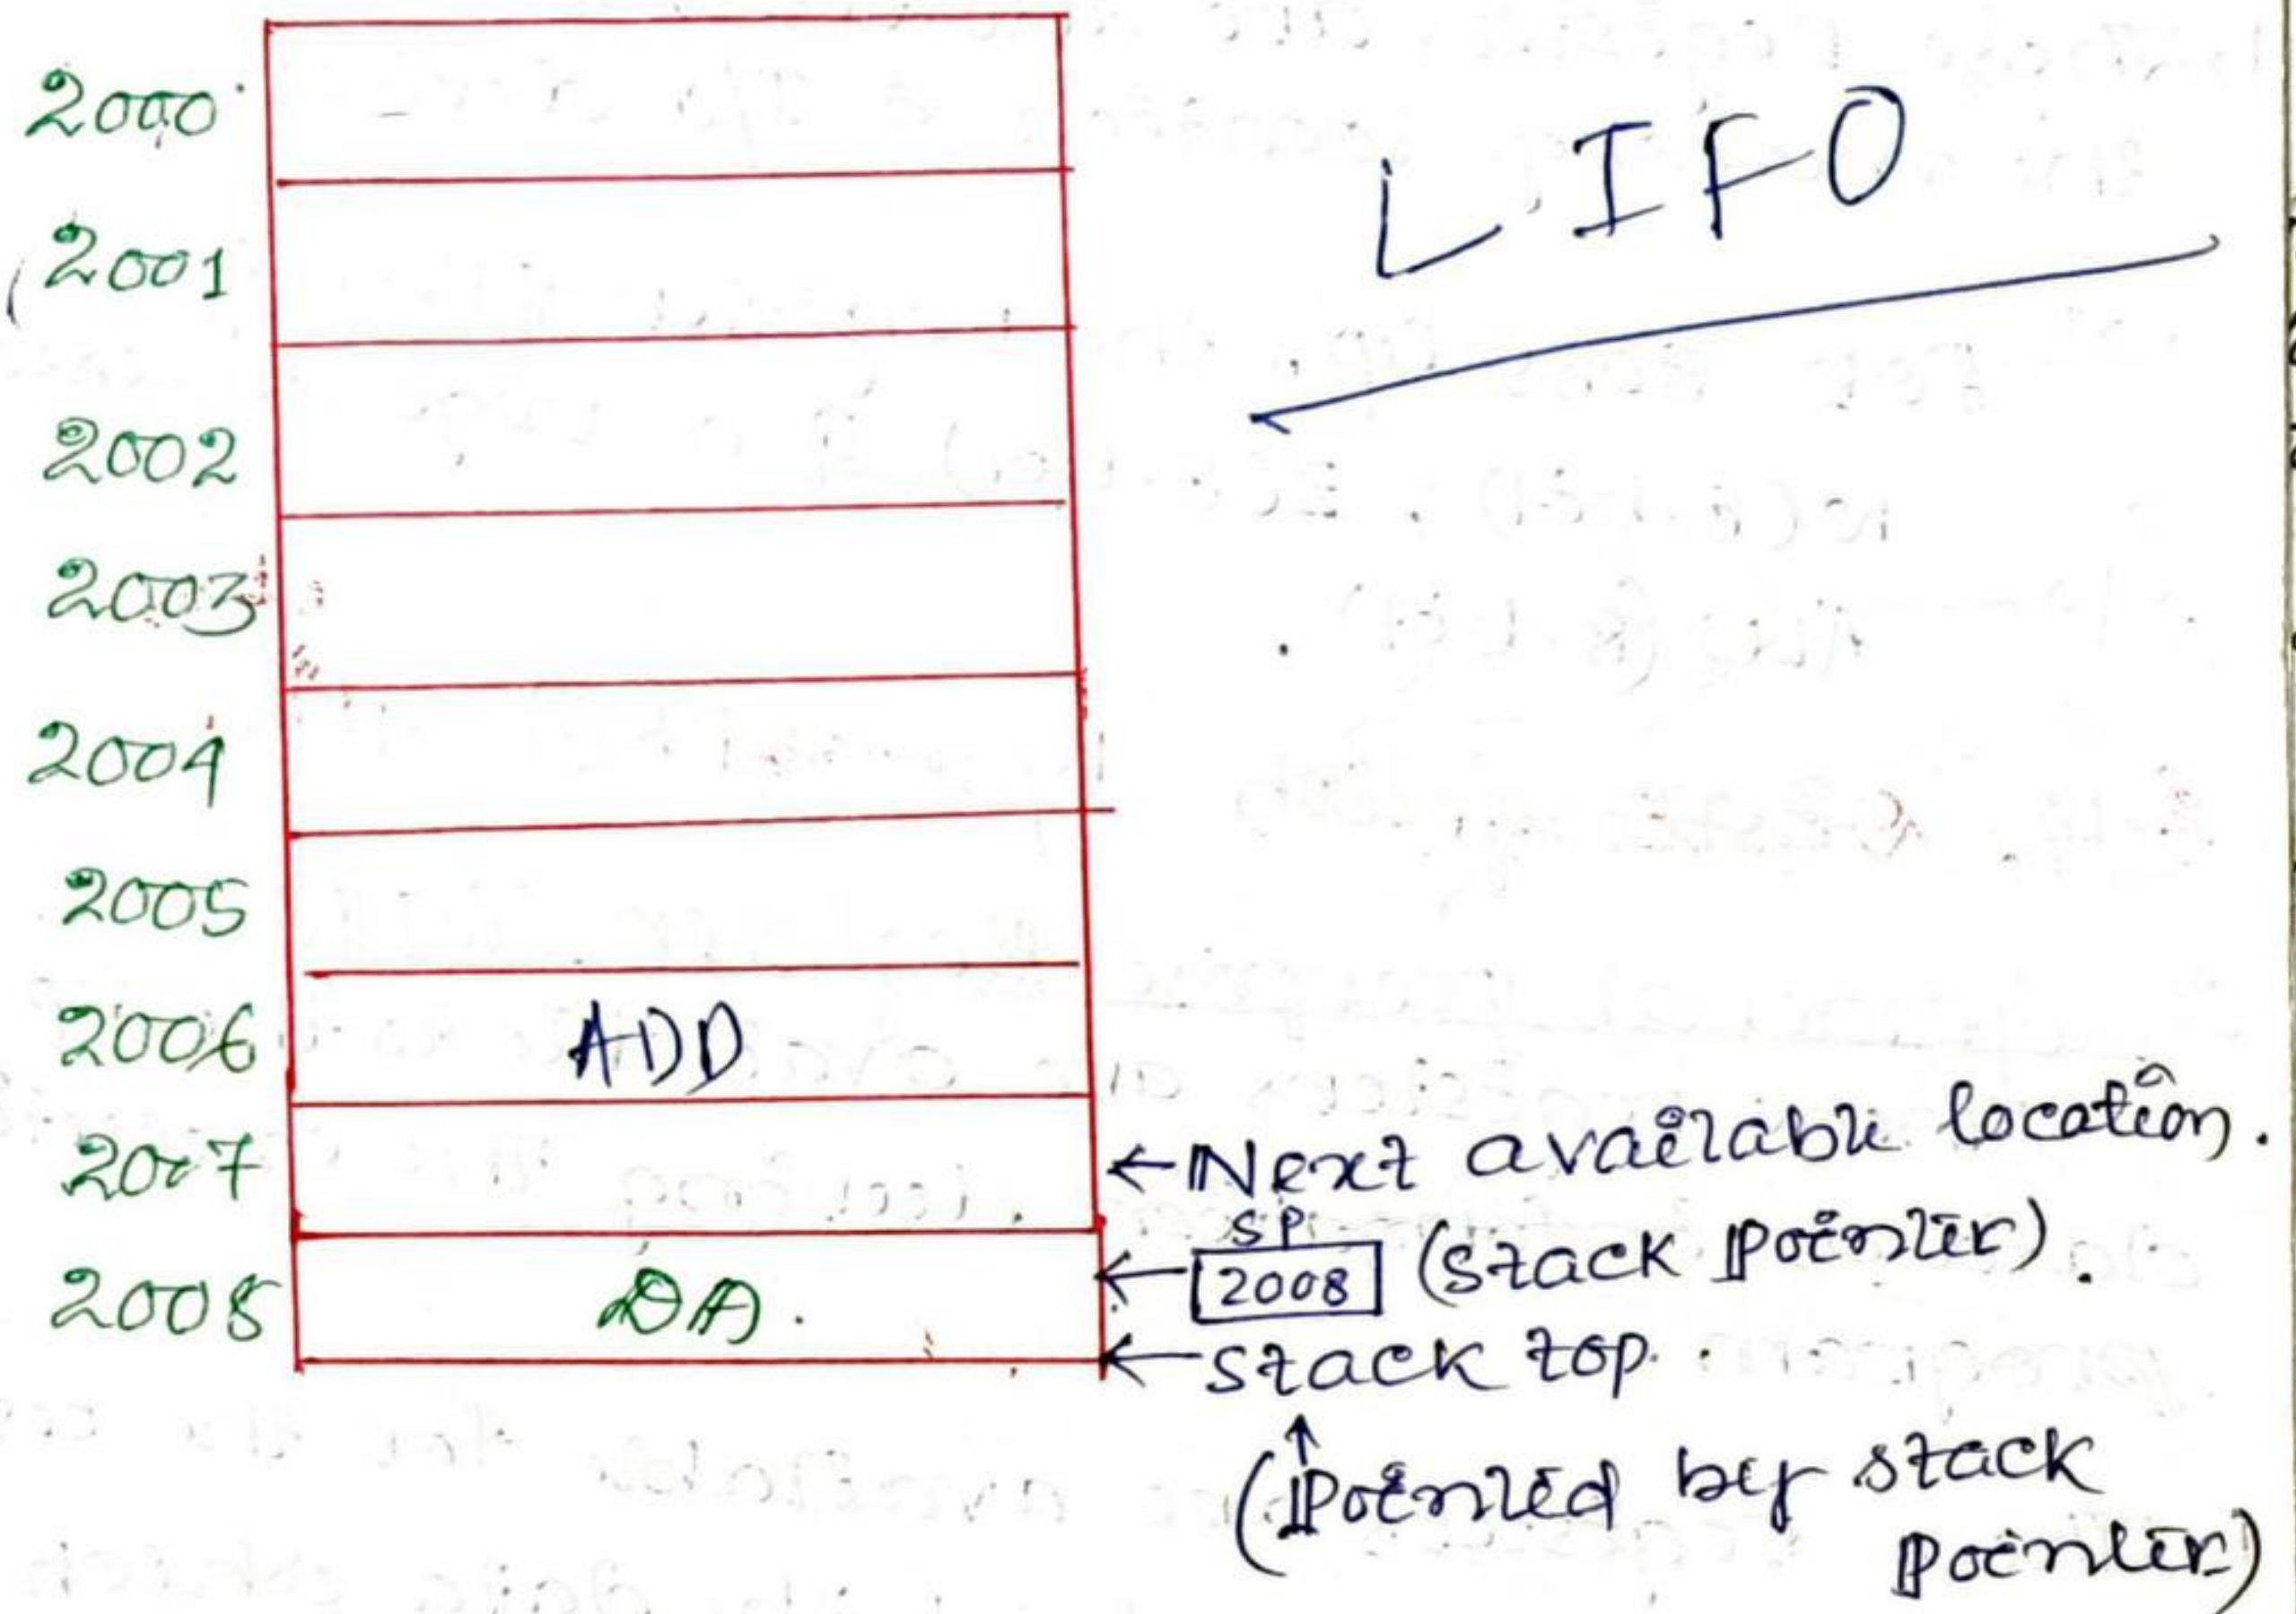 LIFO
2000
2001
2002
2003
2004
2005
2006 ADD
2007 ←Next available location.
SP
2008 DA. ←2008 (Stack Pointer).
←Stack top.
↑
(Pointed by stack
Pointer)